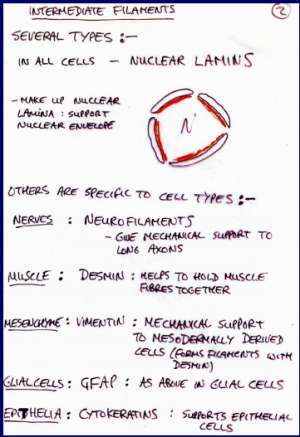 INTERMEDIATE FILAMENTS
2
SEVERAL TYPES :-
IN ALL CELLS - NUCLEAR LAMINS
- MAKE UP NUCLEAR
LAMINA : SUPPORT
NUCLEAR ENVELOPE
N
OTHERS ARE SPECIFIC TO CELL TYPES :-
NERVES : NEUROFILAMENTS
- GIVE MECHANICAL SUPPORT TO
LONG AXONS
MUSCLE : DESMIN : HELPS TO HOLD MUSCLE
FIBRES TOGETHER
MESENCHYME : VIMENTIN : MECHANICAL SUPPORT
TO MESODERMALLY DERIVED
CELLS (FORMS FILAMENTS WITH
DESMIN)
GLIAL CELLS : GFAP : AS ABOVE IN GLIAL CELLS
EPITHELIA : CYTOKERATINS : SUPPORTS EPITHELIAL
CELLS